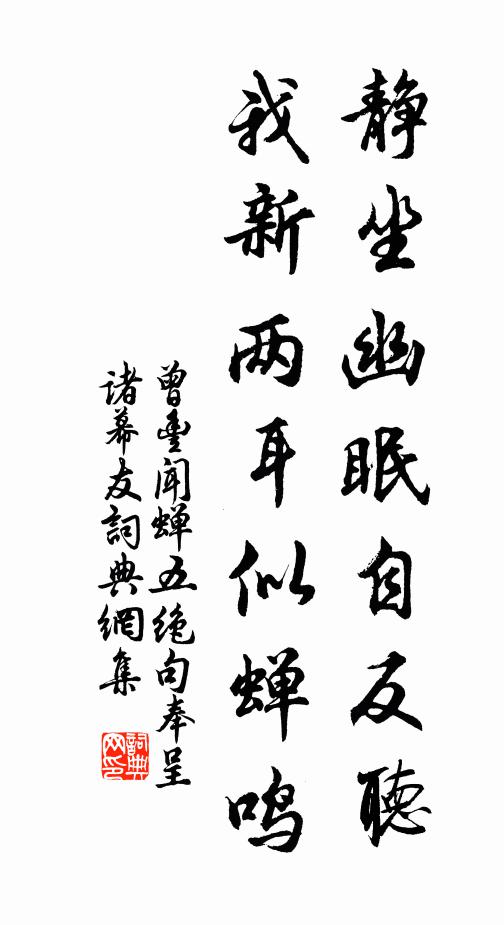 静坐幽眠自反聽
我新两耳似蝉鸣
曾豊闻蝉五绝句奉呈
诸幕友詞典網集
詞典网印